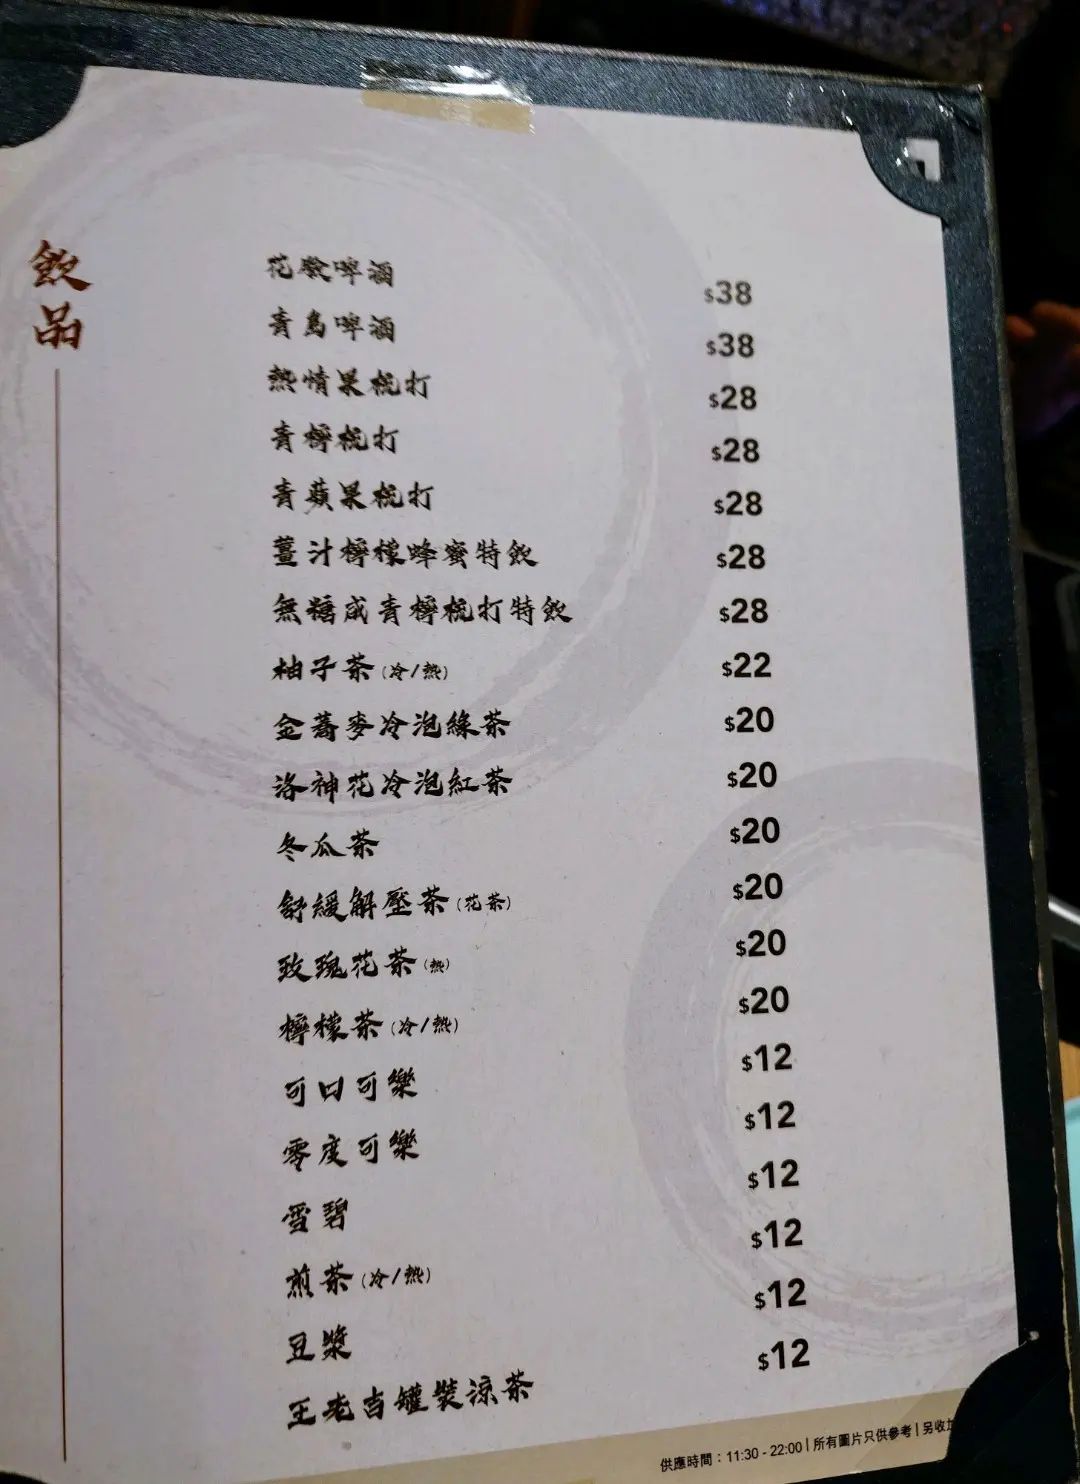 飲品
花散啤酒 $38
青島啤酒 $38
熱情果梳打 $28
青檸梳打 $28
青蘋果梳打 $28
薑汁檸檬蜂蜜特飲 $28
無糖咸青檸梳打特飲 $28
柚子茶(冷/熱) $22
金蕎麥冷泡綠茶 $20
洛神花冷泡紅茶 $20
冬瓜茶 $20
舒緩解壓茶(花茶) $20
玫瑰花茶(熱) $20
檸檬茶(冷/熱) $20
可口可樂 $12
零度可樂 $12
雪碧 $12
煎茶(冷/熱) $12
豆漿 $12
王老吉罐裝涼茶 $12
供應時間：11:30 - 22:00 | 所有圖片只供參考 | 另收